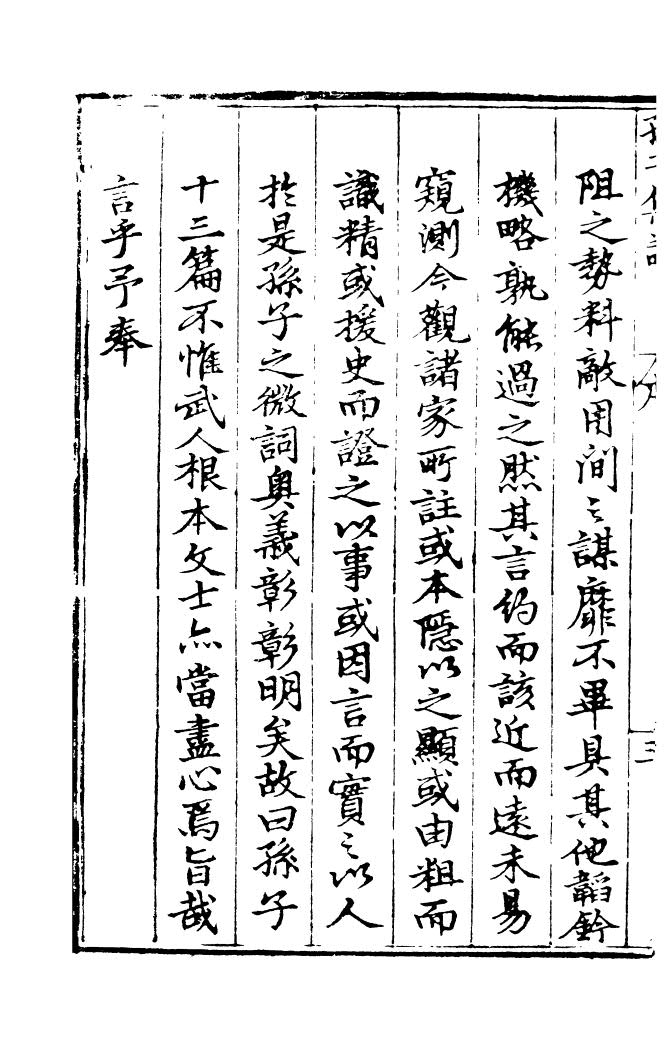 阻之勢料敵用間之謀靡不畢具其他韜鈐
機略孰能過之然其言約而該近而遠未易
窺測今觀諸家所註或本隱以之顯或由粗而
識精或援史而證之以事或因言而實之以人
於是孫子之微詞奧義彰彰明矣故曰孫子
十三篇不惟武人根本文士亦當盡心焉旨哉
言乎予奉